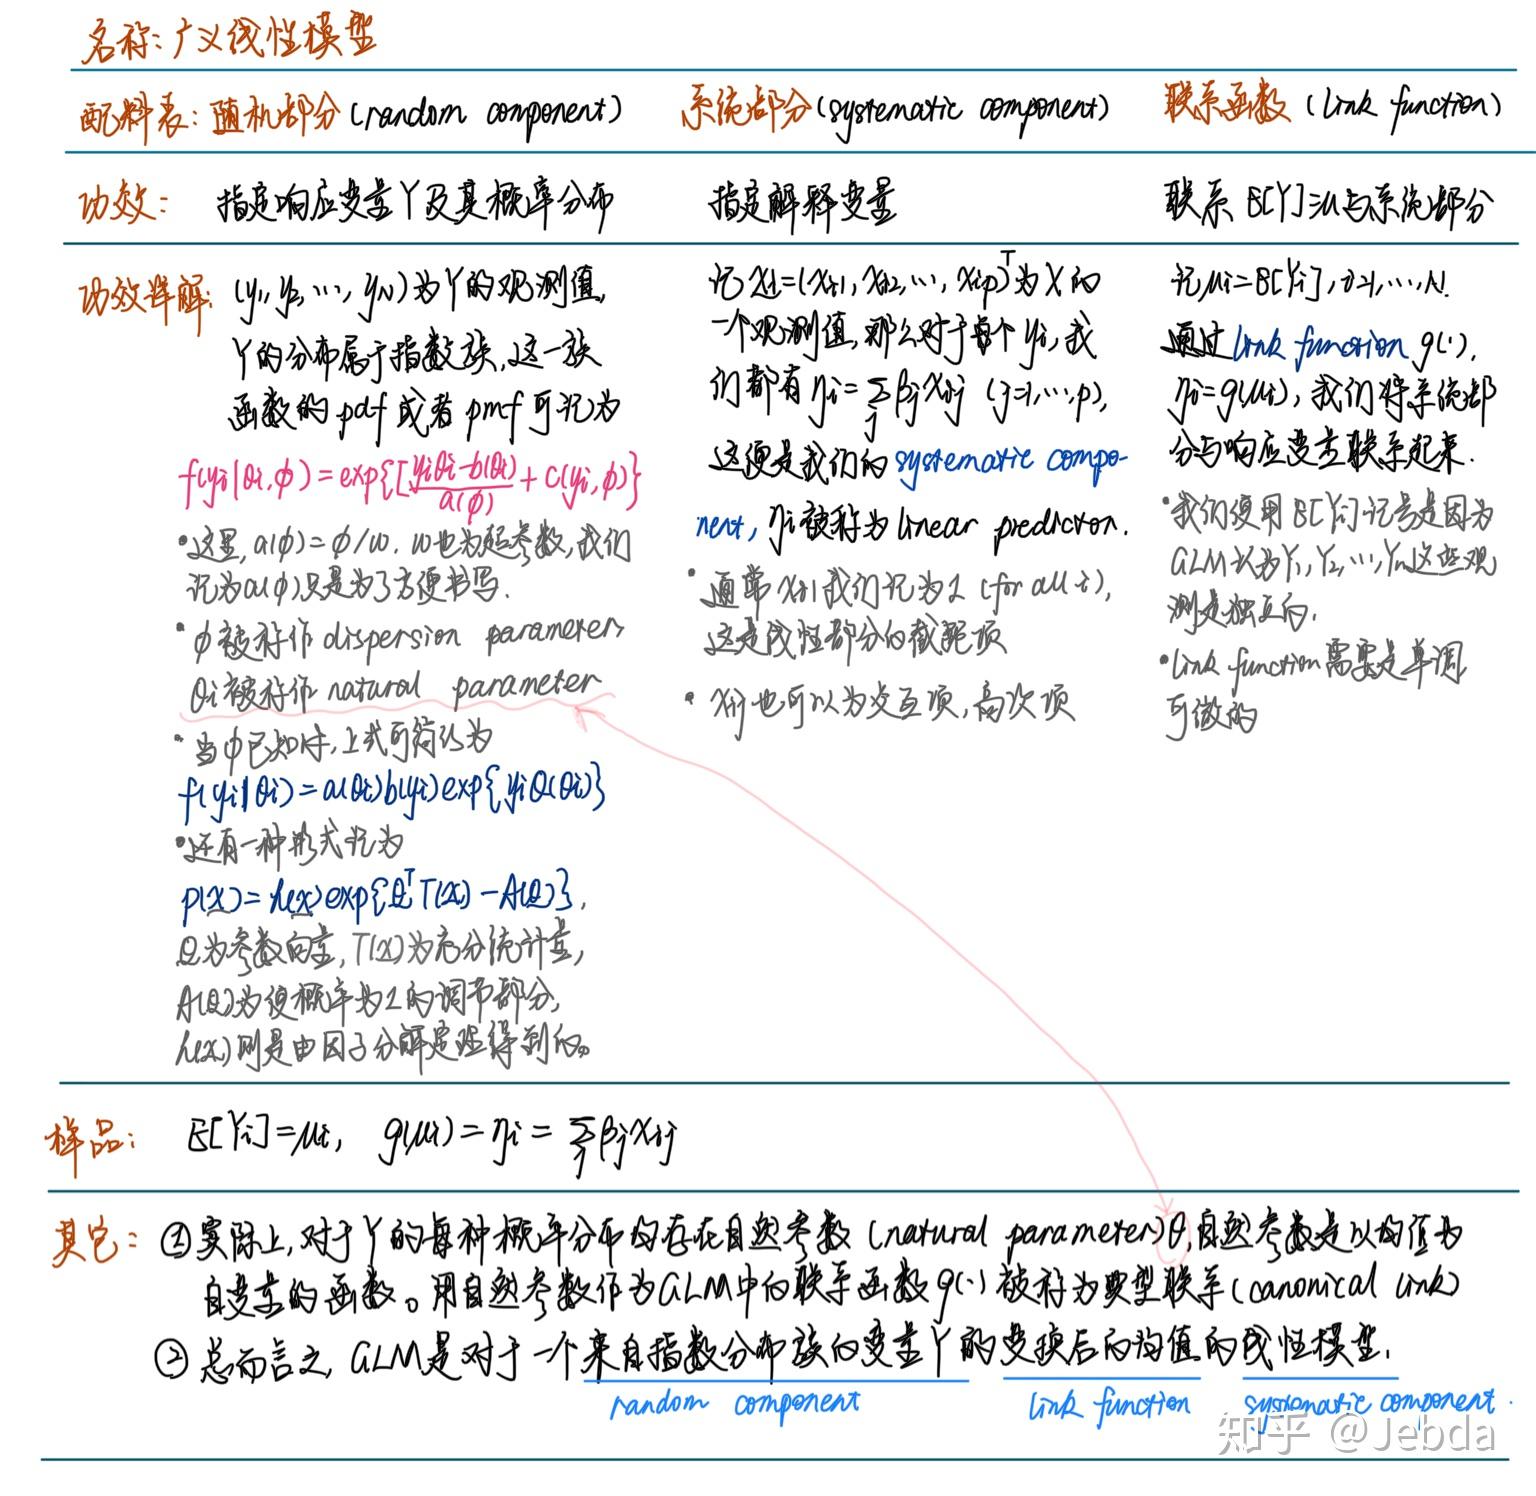 名称：广义线性模型
配料表：随机部分(random component) 系统部分(systematic component) 联系函数 (link function)
功效： 指定响应变量Y及其概率分布 指定解释变量 联系E[Y]=μ与系统部分
功效详解：(y₁, y₂, ⋯, y_N)为Y的观测值，
Y的分布属于指数族，这一族
函数的pdf或者pmf可记为
f(yi|θi,ϕ)=exp{[(yiθi-b(θi))/a(ϕ)+c(yi,ϕ)}
•这里，a(ϕ)=ϕ/ω. ω也为超参数，我们
记为a(ϕ)只是为了方便书写.
•ϕ被称作dispersion parameter,
θi被称作natural parameter
•当ϕ已知时，上式可简记为
f(yi|θi)=a(θi)b(yi)exp{yiQ(θi)}
•还有一种形式记为
p(x)=h(x)exp{θᵀT(x)-A(θ)}.
θ为参数向量，T(x)为充分统计量，
A(θ)为使概率为1的调节部分，
h(x)则是由因子分解定理得到的。
记xi=(xi1, xi2, ⋯, xip)ᵀ为X的
一个观测值，那么对于每个yi，我
们都有ηi=∑j βjxij (j=1,⋯,p),
这便是我们的systematic compo-
nent, ηi被称为linear predictor.
•通常xi1我们记为1 (for all i),
这是线性部分的截距项
•xij也可以为交互项，高次项
记μi=E[Yi], i=1,⋯,N.
通过link function g(·),
ηi=g(μi)，我们将系统部
分与响应变量联系起来.
•我们使用E[Yi]记号是因为
GLM认为Y₁, Y₂, ⋯, Yn这些观
测是独立的.
•link function需要是单调
可微的
样品： E[Yi]=μi, g(μi)=ηi=∑j βjxij
其它：①实际上，对于Y的每种概率分布均存在自然参数(natural parameter)θ,自然参数是以均值为
自变量的函数。用自然参数作为GLM中的联系函数g(·)被称为典型联系(canonical link)
②总而言之，GLM是对于一个来自指数分布族的变量Y的变换后的均值的线性模型.
random component link function systematic component.
知乎 @Jebda